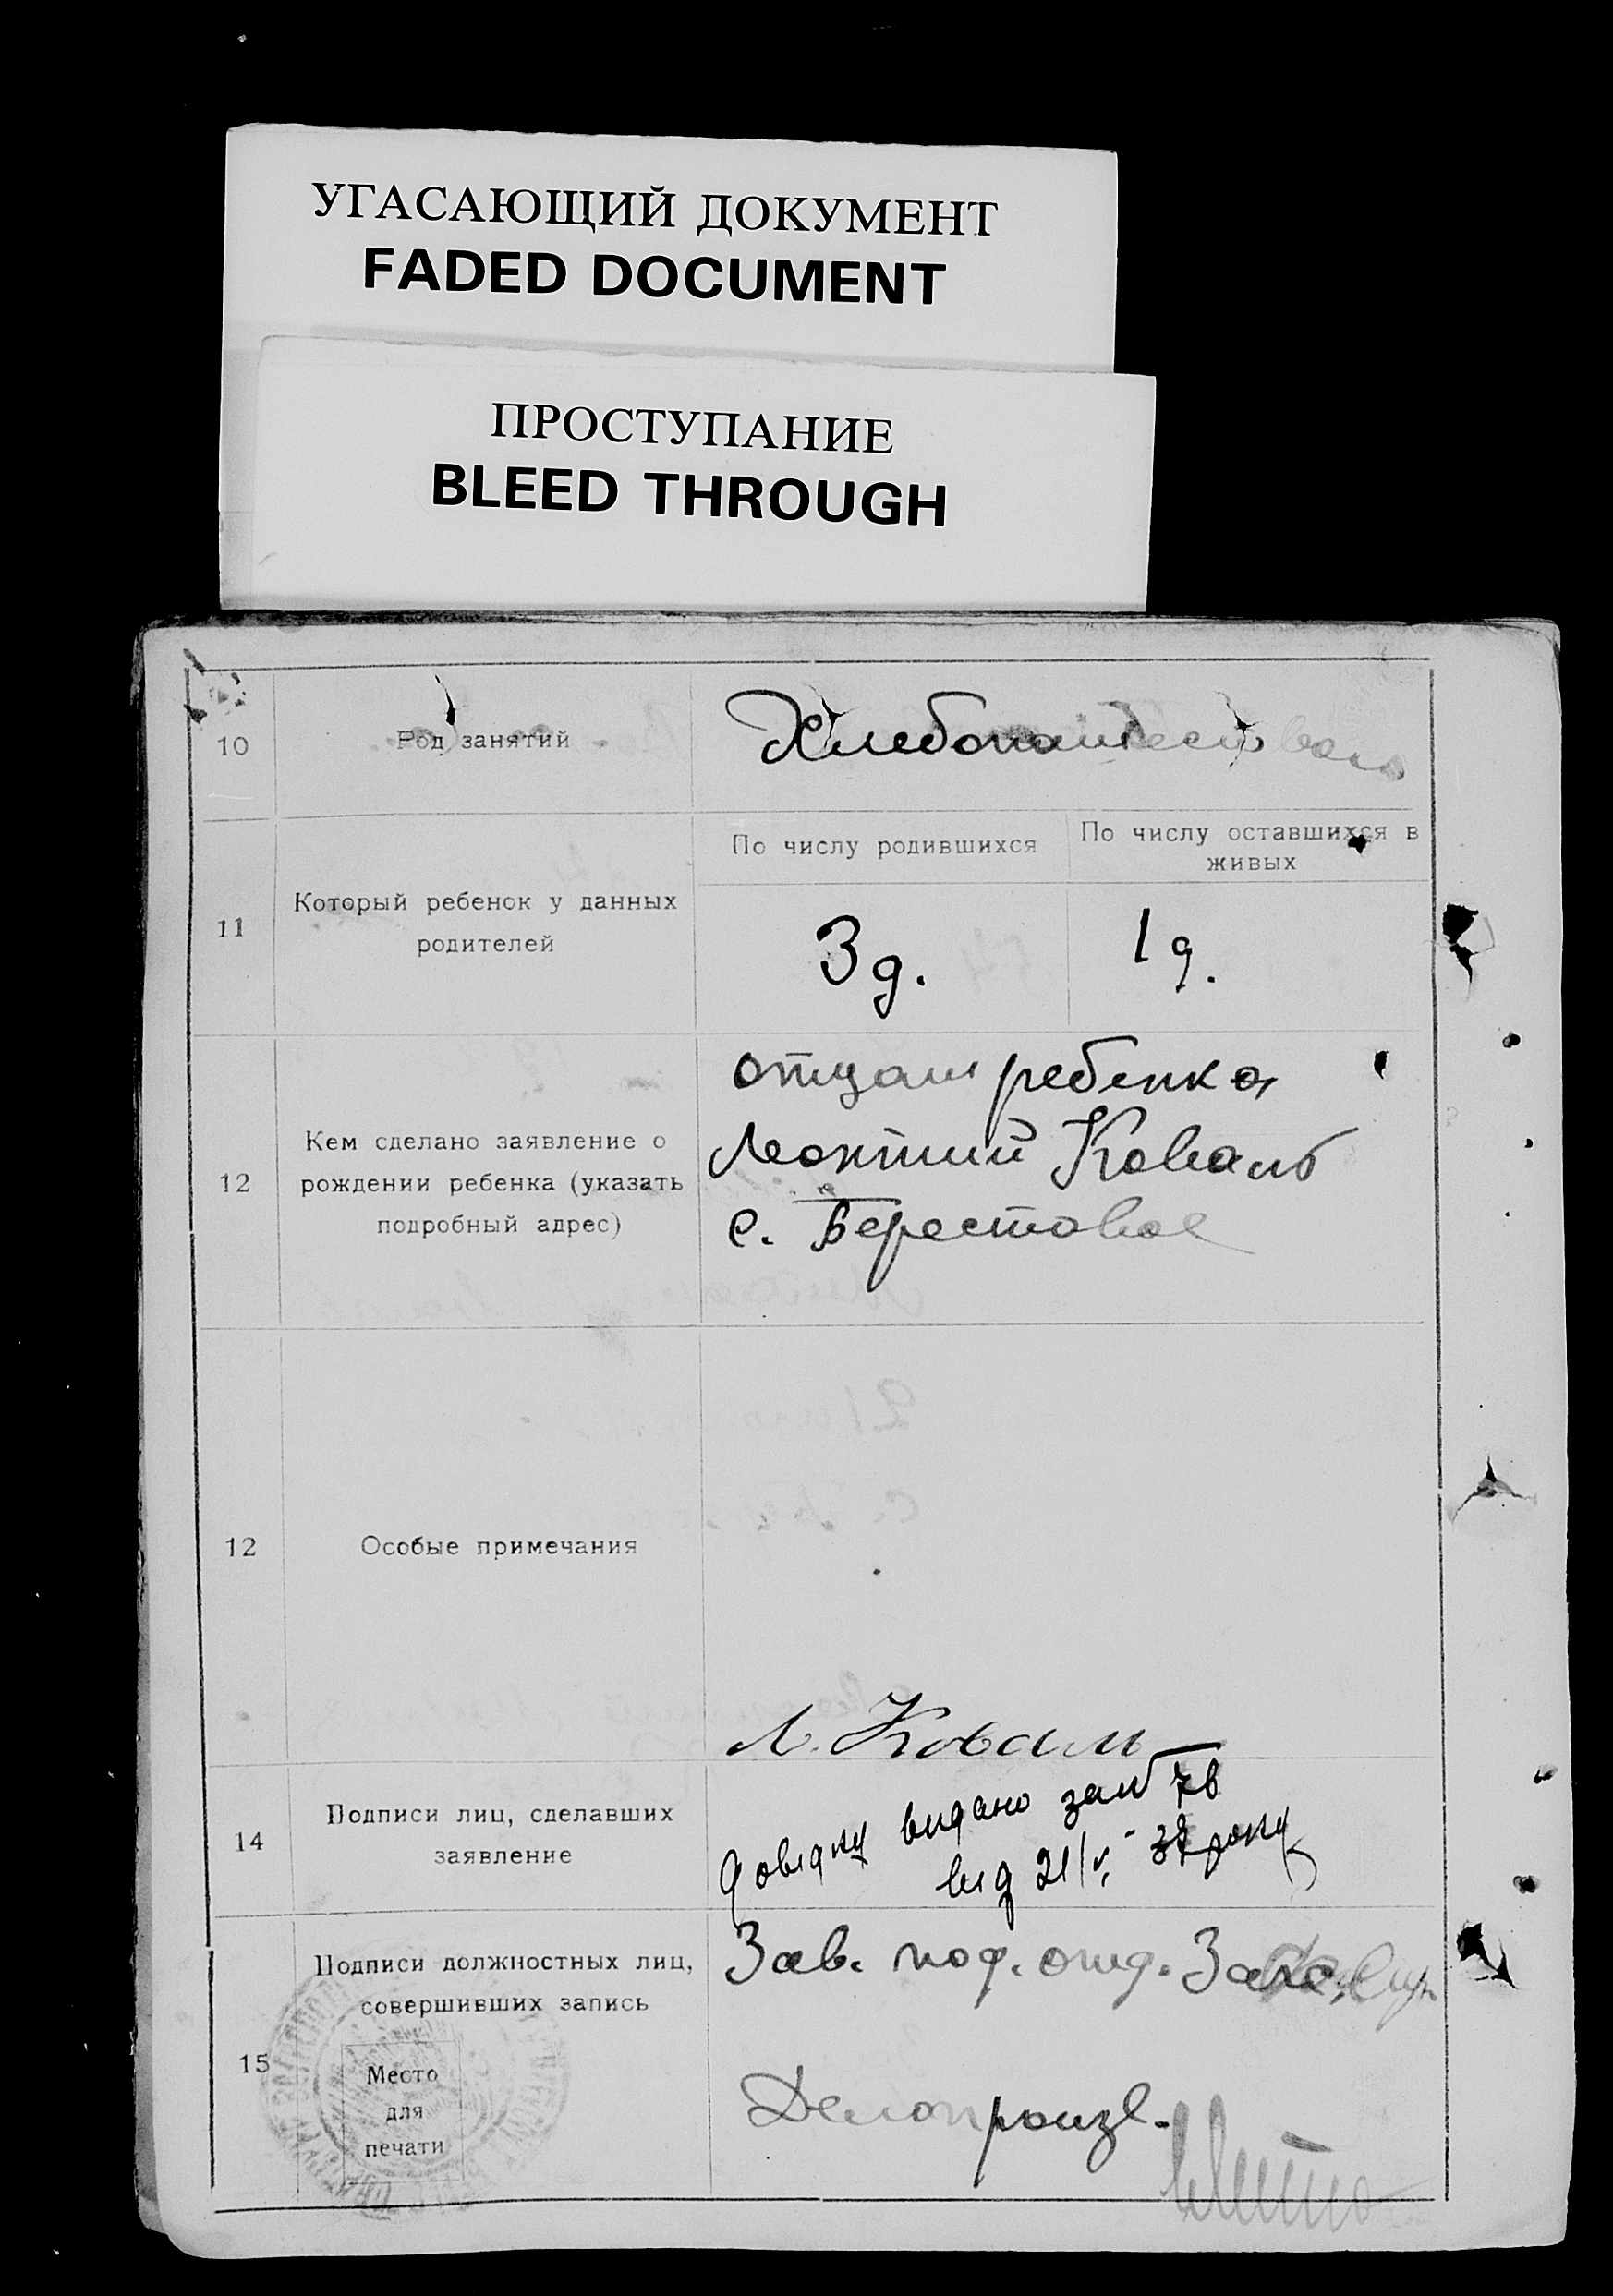 УГАСАЮЩИЙ ДОКУМЕНТ
FADED DOCUMENT
ПРОСТУПАНИЕ
BLEED THROUGH
10
Род занятий
11
Который ребенок у данных
родителей
По числу родившихся
По числу оставшихся в
живых
3 д.
1 д.
12
Кем сделано заявление о
рождении ребенка (указать
подробный адрес)
отцом ребенка
Леонтий Коваль
с. Берестовое
12
Особые примечания
Л. Коваль
14
Подписи лиц, сделавших
заявление
довідку видано за №
від 21/V- року
15
Подписи должностных лиц,
совершивших запись
Место
для
печати
Зав. под. отд. Загс
Делопроизв.